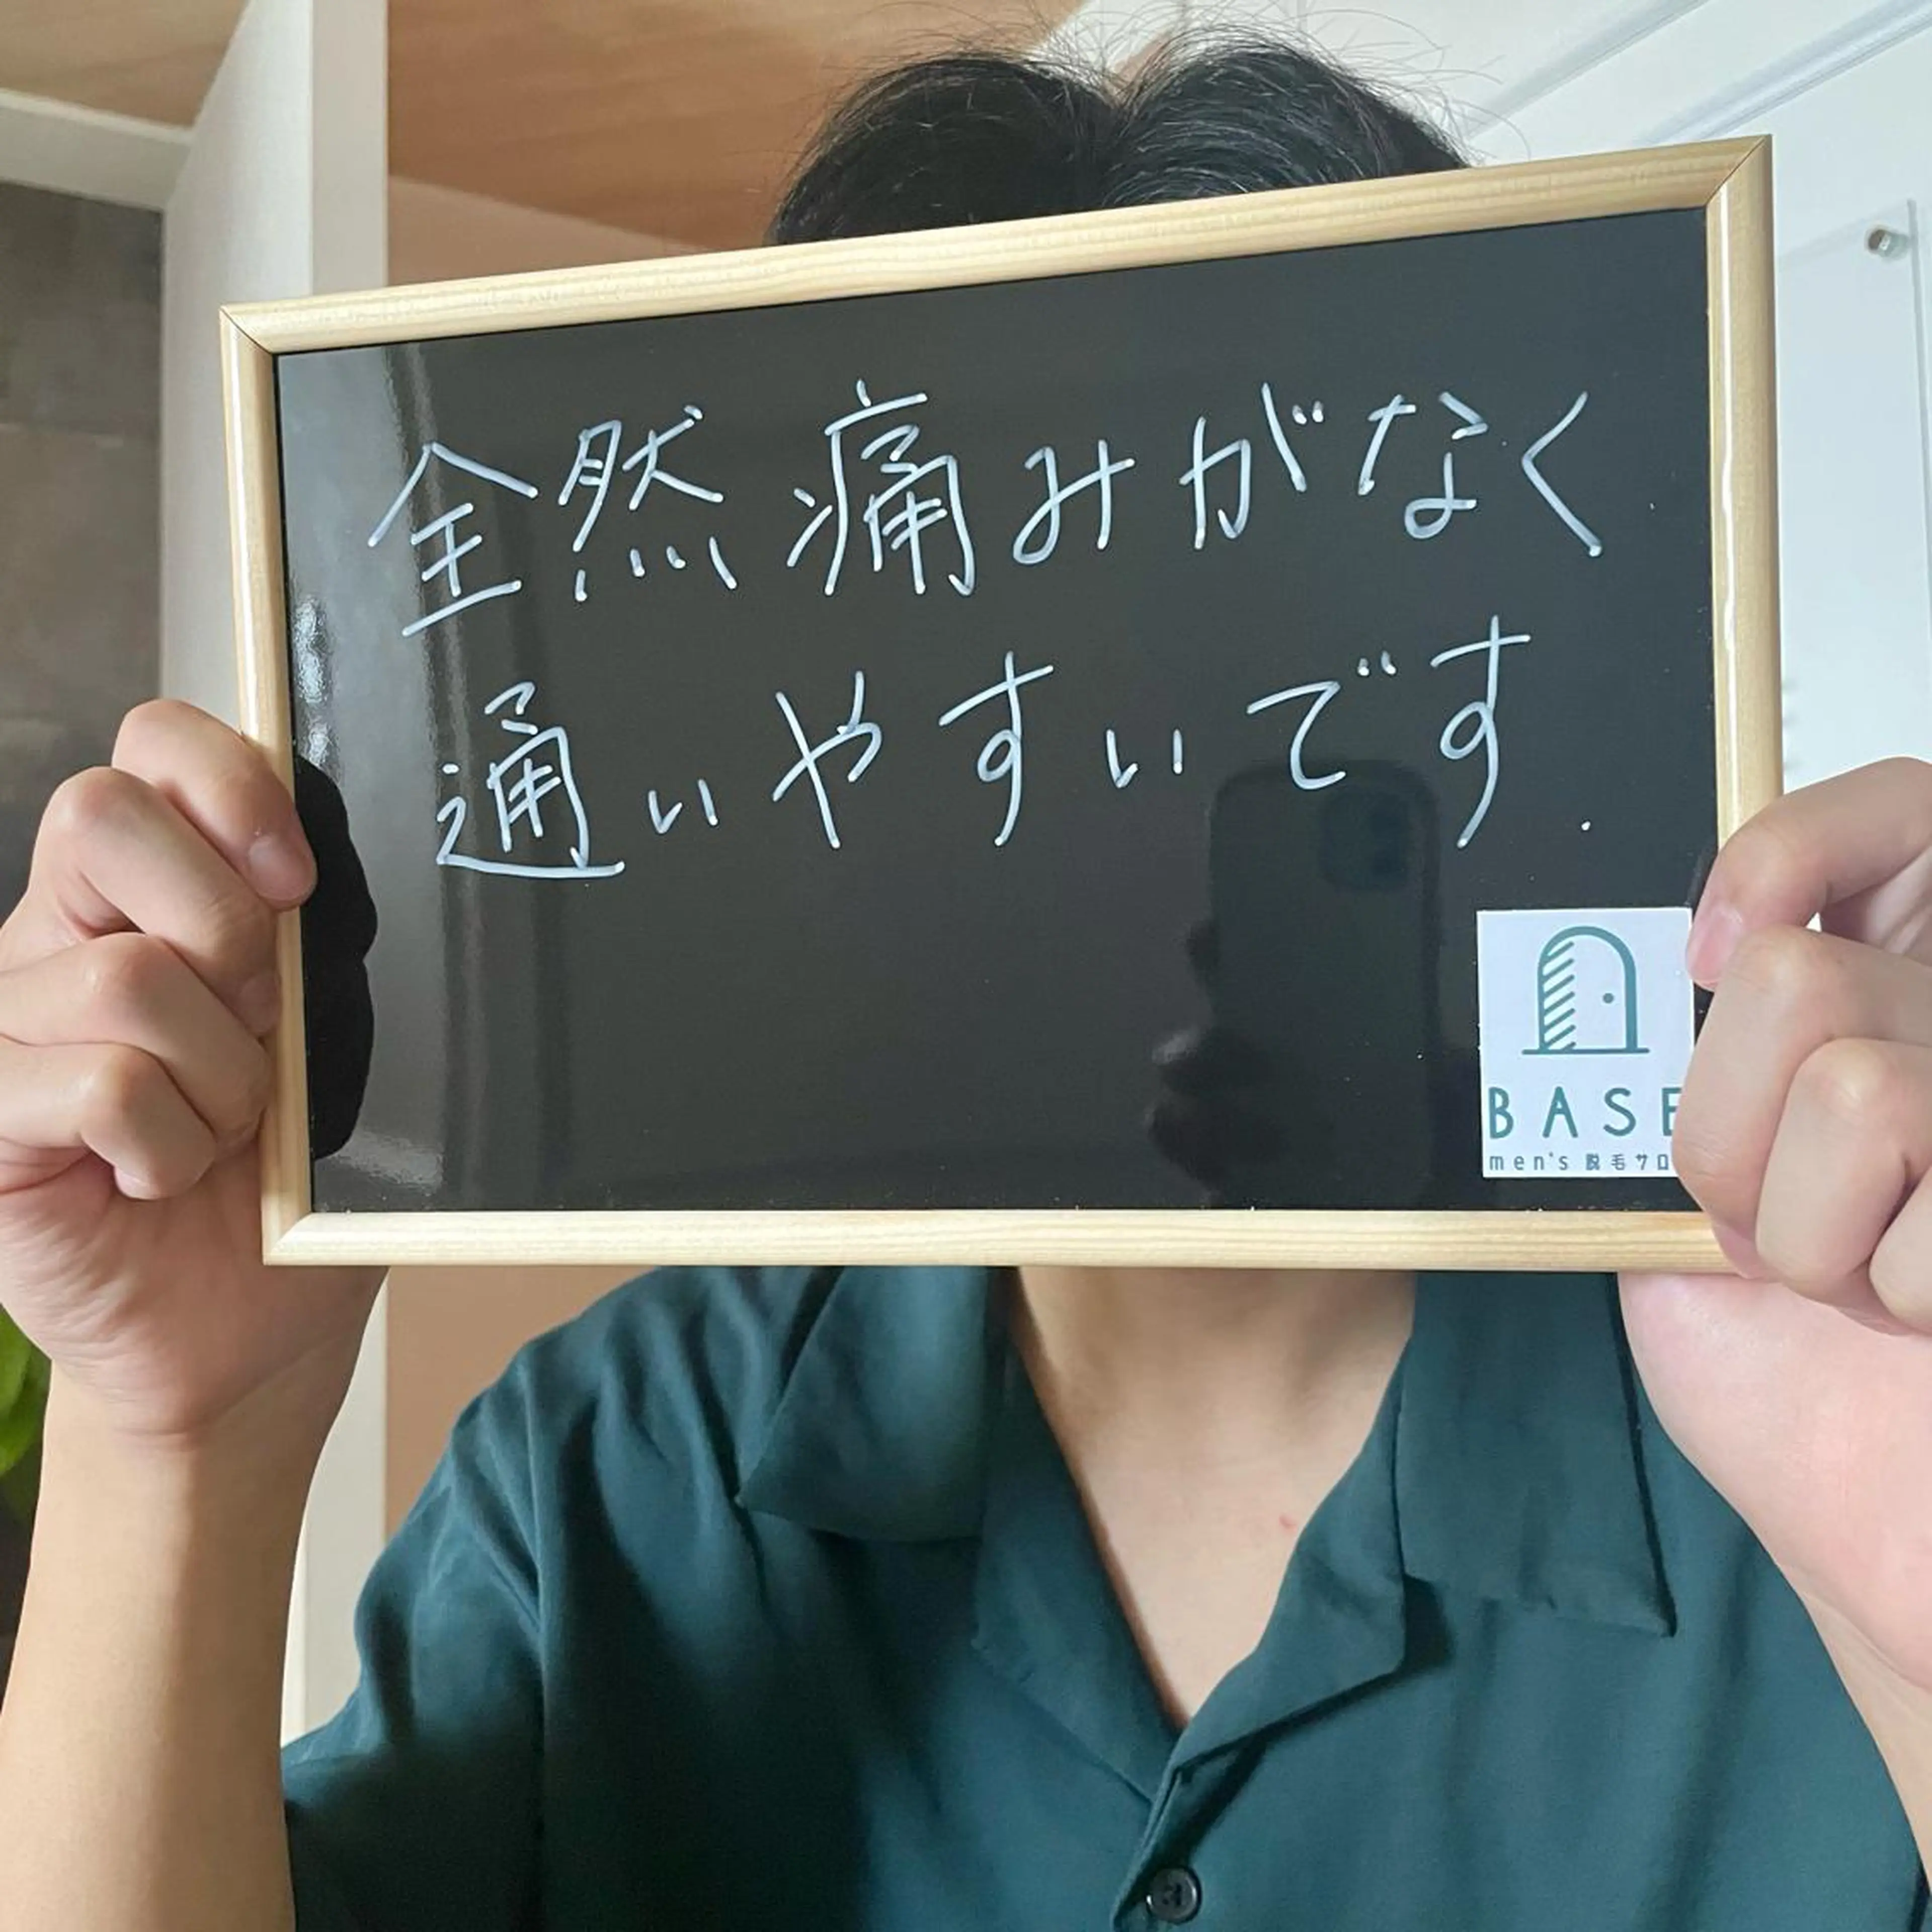 全然痛みがなく
通いやすいです.
BASE
men's 脱毛サロ